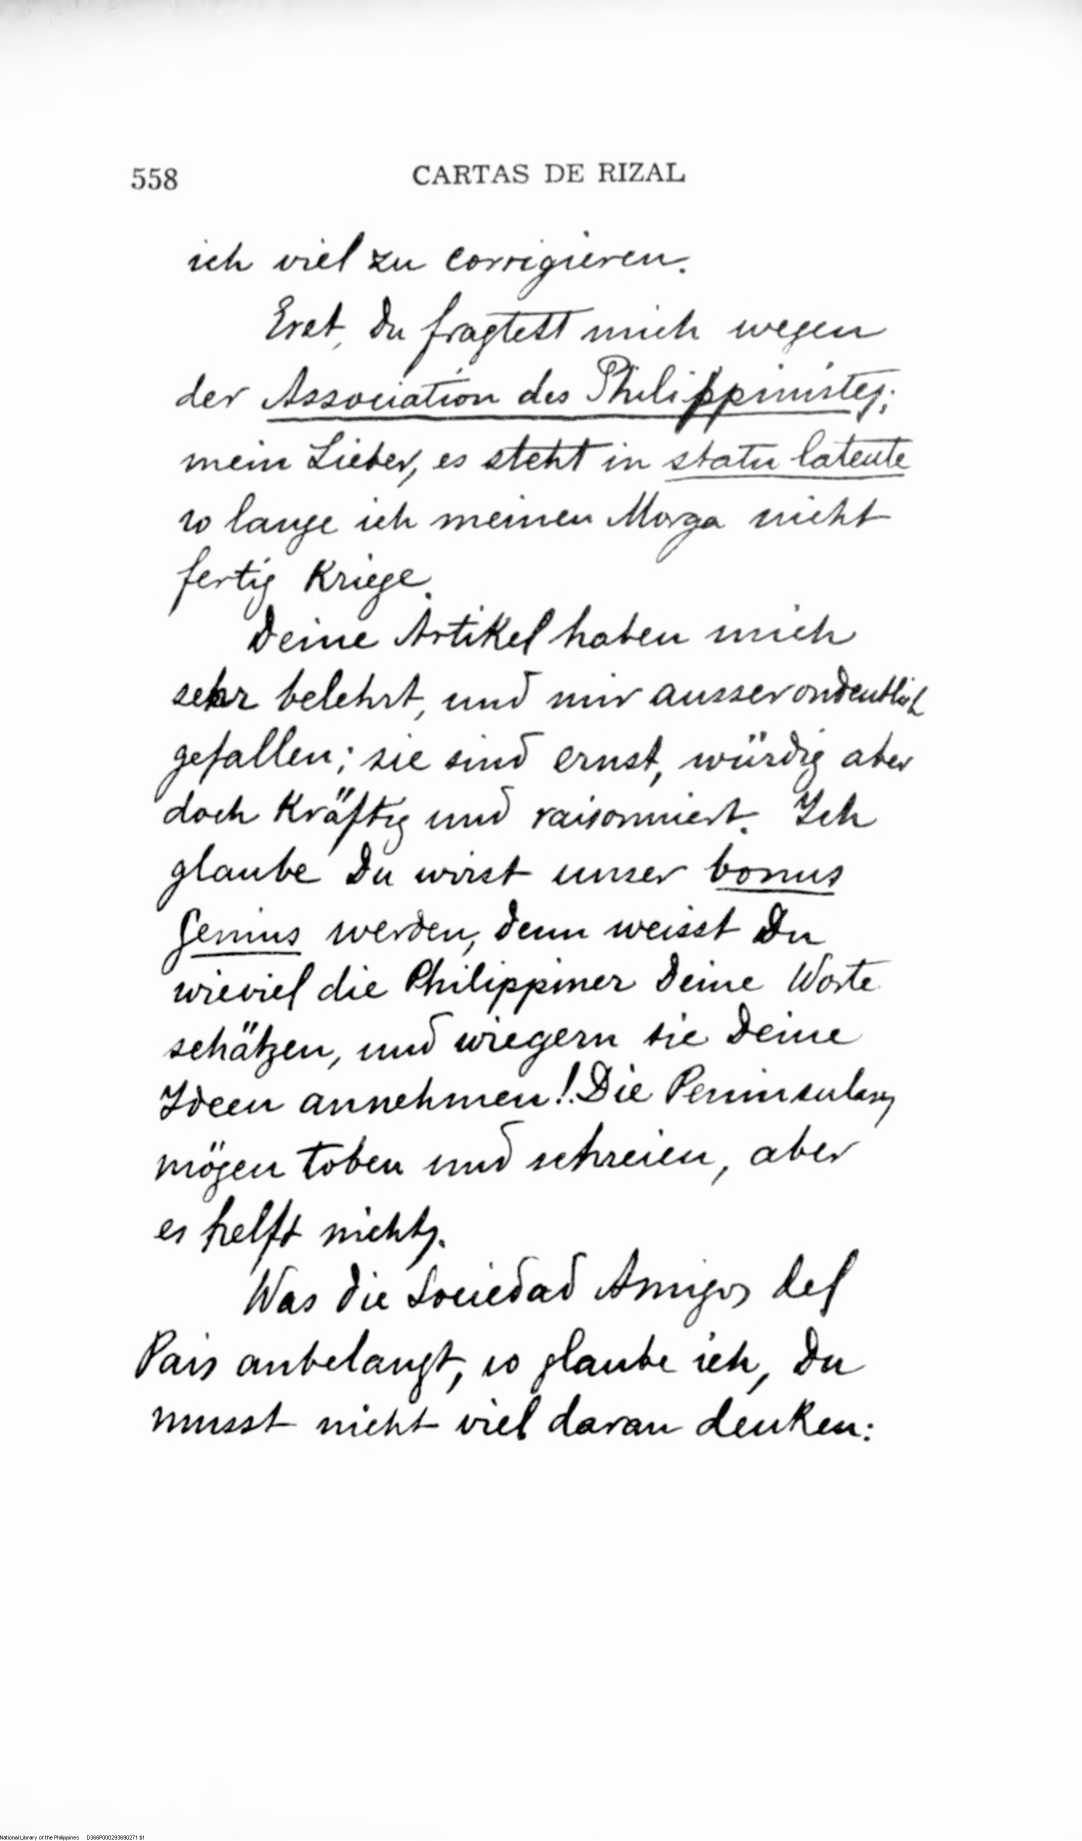 558 CARTAS DE RIZAL
ich viel zu corrigieren.
Erst, du fragtest mich wegen
der Association des Philippinistes;
mein Lieber, es steht in statu latente
so lange ich meinen Morga nicht
fertig kriege.
Deine Artikel haben mich
sehr belehrt, und mir ausserordentlich
gefallen; sie sind ernst, würdig aber
doch kräftig und raisonniert. Ich
glaube Du wirst unser bonus
Genius werden, denn weisst Du
wieviel die Philippiner Deine Worte
schätzen, und wiegern sie Deine
Ideen annehmen! Die Peninsulares
mögen toben und schreien, aber
es helft nichts.
Was die Sociedad Amigos del
Pais anbelangt, so glaube ich, Du
musst nicht viel daran denken:
National Library of the Philippines